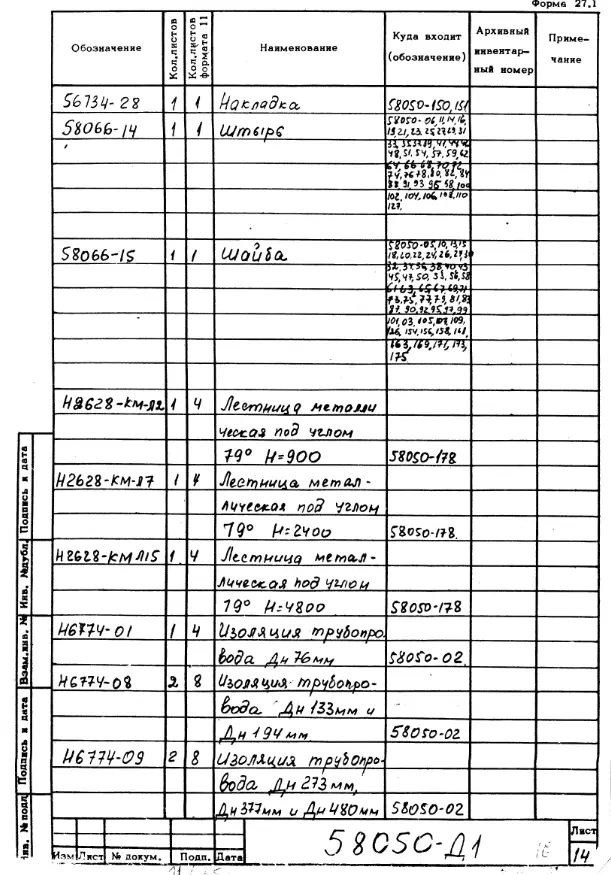 Форма 27.1
Обозначение Кол.листов Кол.листов формата 11 Наименование Куда входит (обозначение) Архивный инвентарный номер Примечание
56734-28 1 1 Накладка 58050-150,151
58066-14 1 1 Штырь 58050-06,11,14,16,
19,21,23,25,27,29,31
48,51,54,57,59,62
64,66,68,70,72
88,91,93,95,98,100
102,104,106,108,110
127.
58066-15 1 1 Шайба 58050-05,10,13,15
18,20,22,24,26,27,30
32,34,36,38,40,43
45,47,50,53,56,58
61,63,65,67,69,71
73,75,77,79,81,83
87,90,92,95,97,99
101,03,105,107,109,
126,154,156,158,161,
163,169,171,173,
175
Н2628-КМ-Л2 1 4 Лестница металли
ческая под углом
79° Н=900 58050-178
Н2628-КМ-Л7 1 4 Лестница метал-
лическая под углом
79° Н=2400 58050-178.
Н2628-КМЛ15 1 4 Лестница метал-
лическая под углом
79° Н=4800 58050-178
Н6774-01 1 4 Изоляция трубопро-
вода Дн 76мм 58050-02.
Н6774-08 2 8 Изоляция трубопро-
вода Дн 133мм и
Дн 194мм 58050-02
Н6774-09 2 8 Изоляция трубопро-
вода Дн 273мм,
Дн 377мм и Дн 480мм 58050-02
Инв. № подл. Подпись и дата Взам.инв. № Инв. №дубл. Подпись и дата
58050-Д1
Лист
14
Изм Лист № докум. Подп. Дата